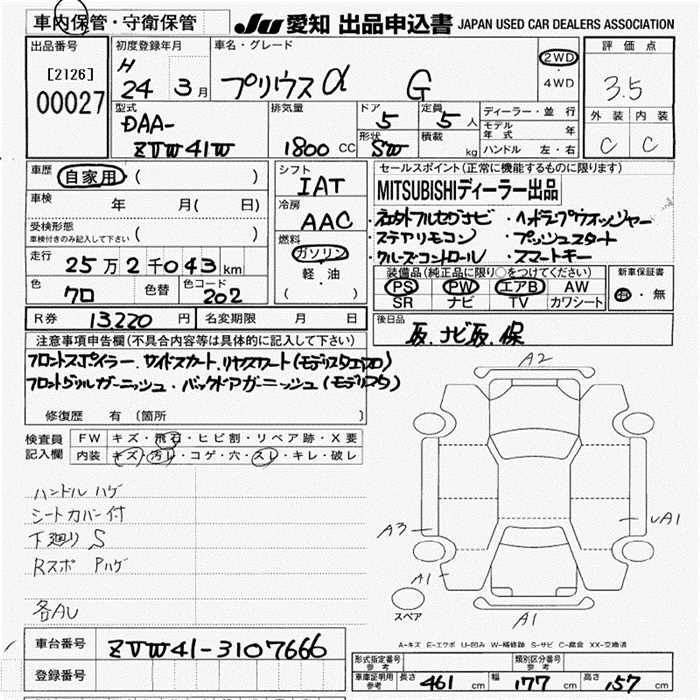 車内保管・守衛保管
JU 愛知 出品申込書 JAPAN USED CAR DEALERS ASSOCIATION
出品番号
[2126]
00027
初度登録年月
H
24 3月
車名・グレード
プリウスα G
2WD
・
4WD
評価点
3.5
外装 内装
C C
型式
DAA-
ZVW41W
排気量
1800 CC
ドア
5
定員
5人
形状
SW
積載
kg
ディーラー・並 行
モデル年式 年
ハンドル 左・右
車歴
自家用 ( )
車検
年 月( 日)
受検形態
車検付きのみ記入して下さい ( )
走行
25万2千043km
色
クロ
色替
色コード
202
シフト
IAT
冷房
AAC
燃料
ガソリン
・
軽・油
( )
セールスポイント(正常に機能するものに限ります)
MITSUBISHIディーラー出品
・ステアリモコン
・クルーズコントロール
・ヘッドランプウォッシャー
・プッシュスタート
・スマートキー
装備品(純正品に限り○をつけてください)
PS PW エアB AW
SR ナビ TV カワシート
新車保証書
有・無
R券 13220 円
名変期限 月 日
後日品
取、ナビ取、保
注意事項申告欄(不具合内容等は具体的に記入して下さい)
フロントスポイラー、サイドスカート、リヤスカート(モデリスタエアロ)
フロントグリルガーニッシュ・バックドアガーニッシュ(モデリスタ)
修復歴 有 (箇所 )
検査員
記入欄
FW キズ・飛石・ヒビ割・リペア跡・X要
内装 キズ・汚レ・コゲ・穴・スレ・キレ・破レ
ハンドル ハゲ
シートカバー付
下廻り S
Rスポ Pハゲ
各AU
A2
A3
A1
UA1
A1
スペア
A-キズ E-エクボ U-凹み W-補修跡 S-サビ C-腐食 XX-交換済
車台番号 ZVW41-3107666
登録番号
形式指定番号
参考
類別区分番号
参考
車庫証明用
参考
長さ 461 cm 幅 177 cm 高さ 157 cm